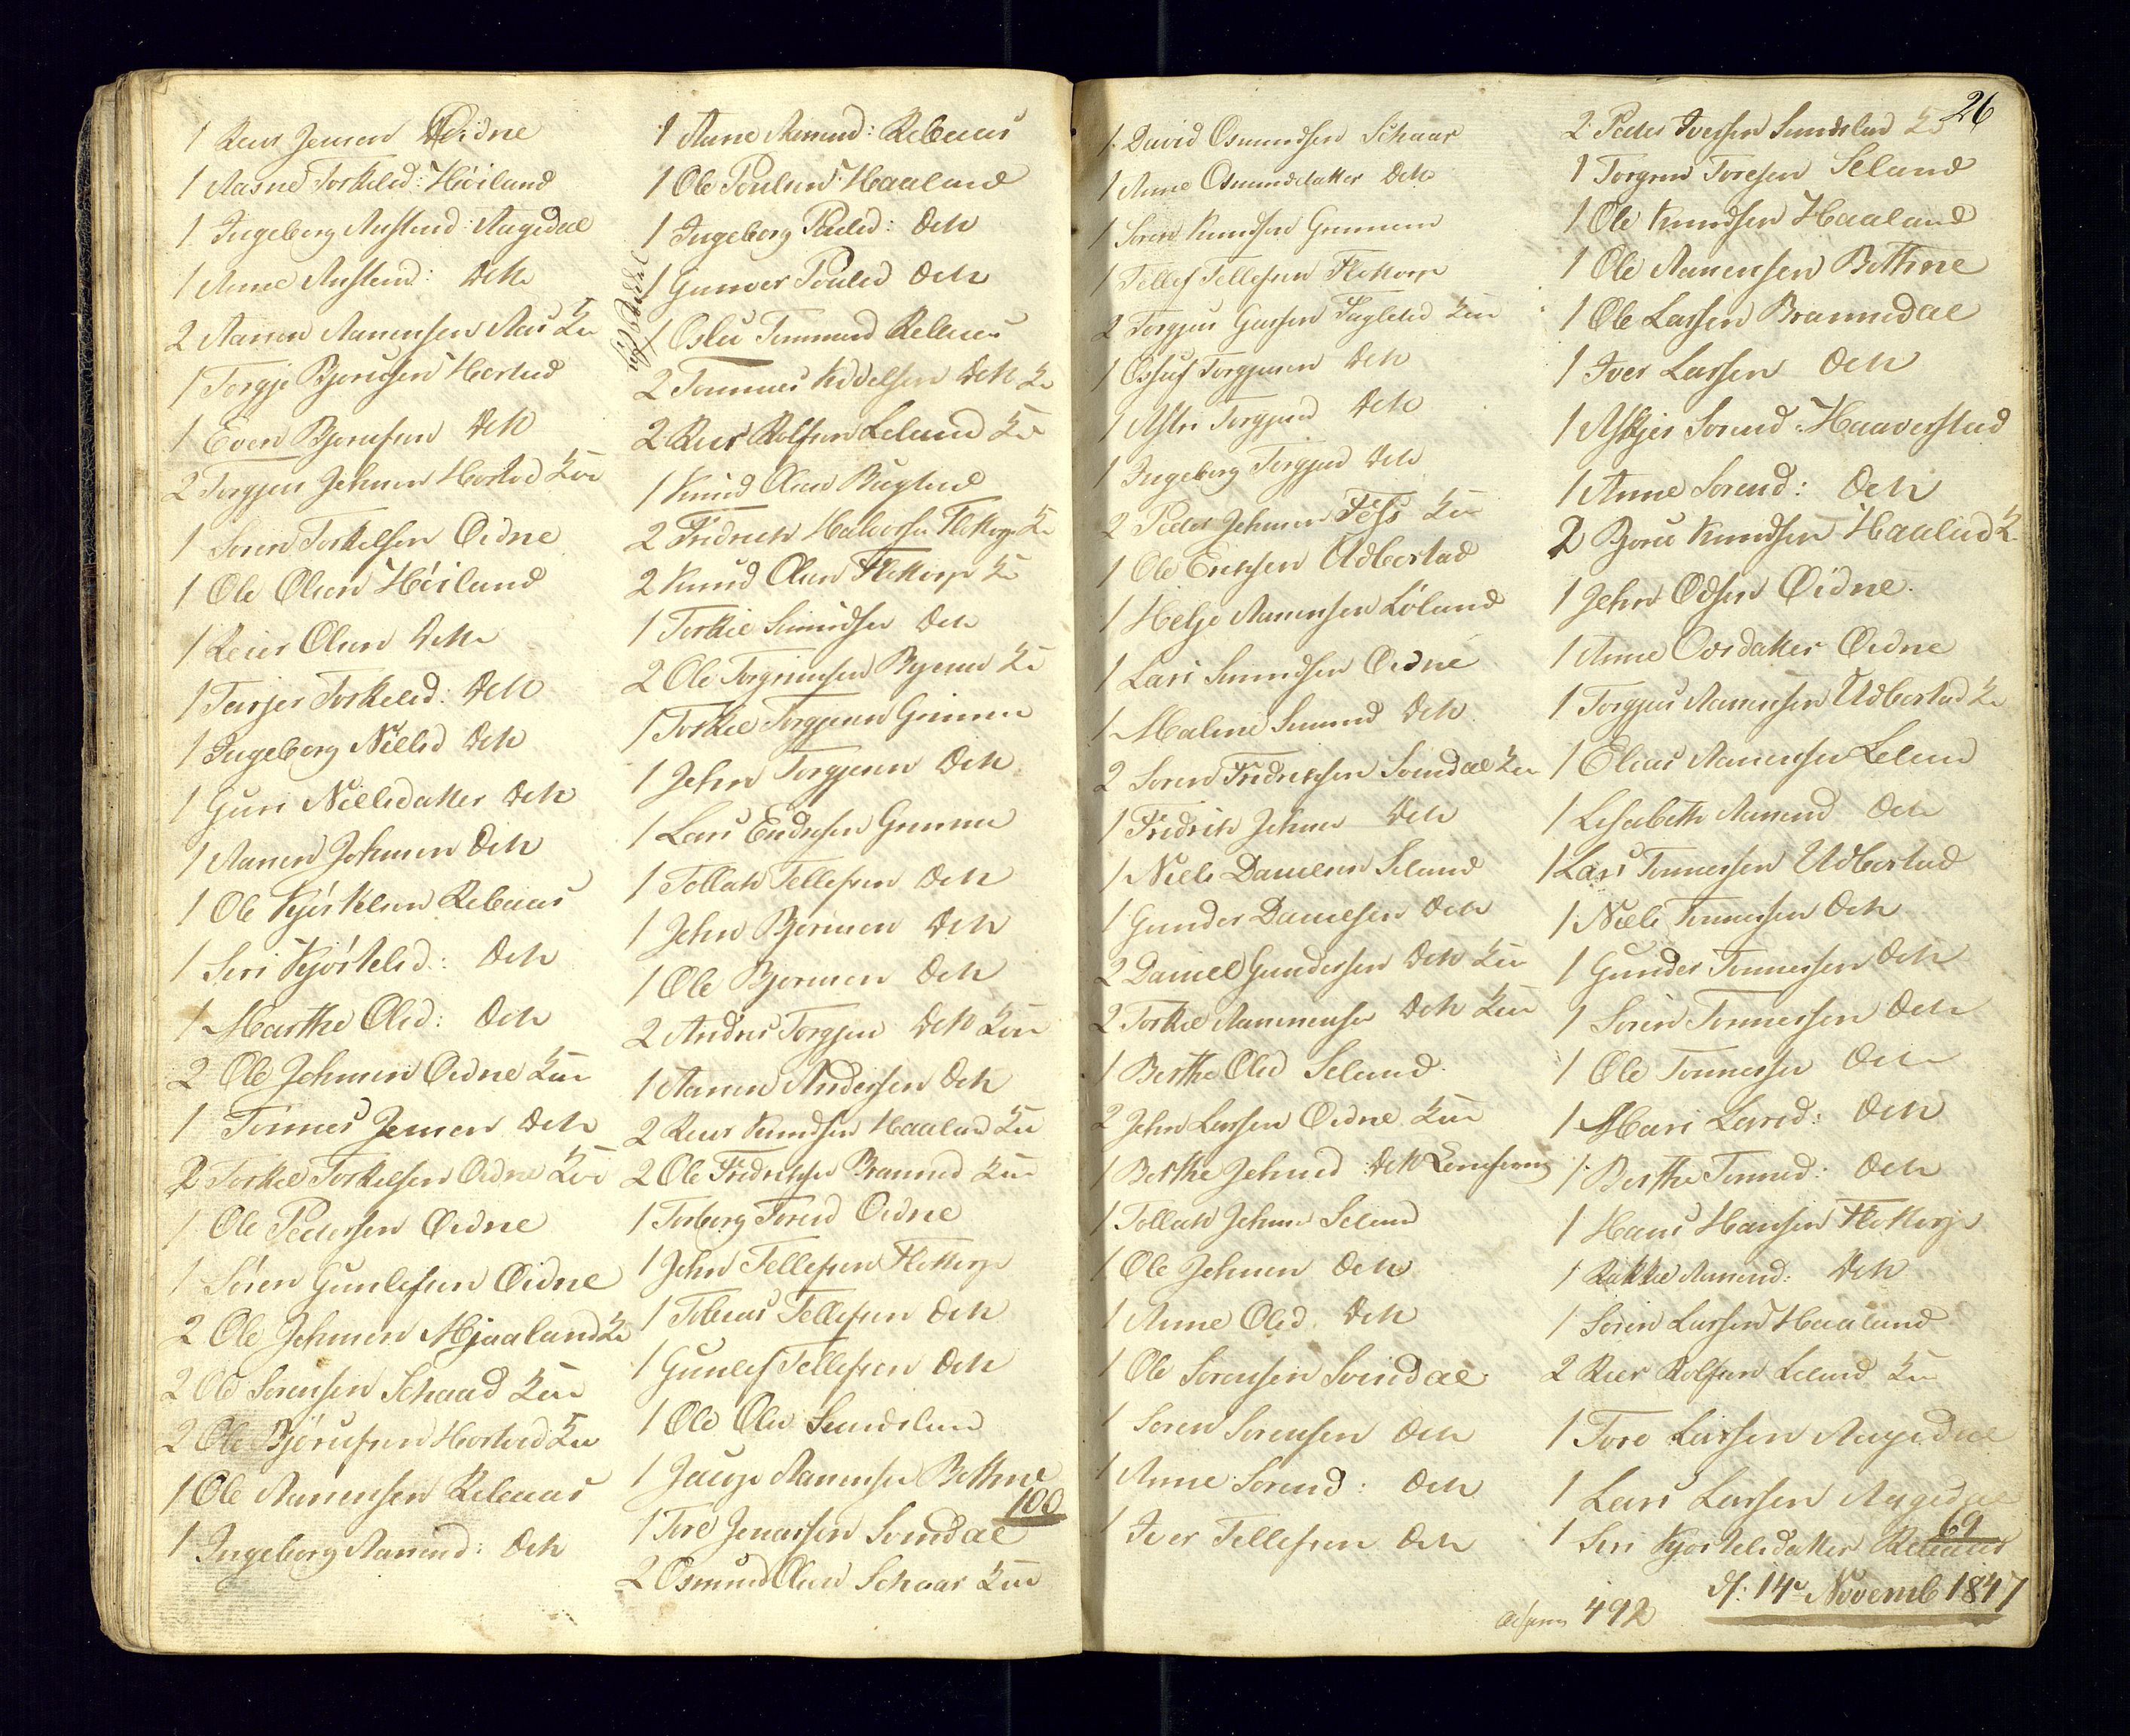 1 Reier Jensen Øidne
1 Aasne Torkelsd: Höiland
1 Ingeborg Austend: Aagedal
1 Anne Austend: Dito
2 Aanen Aanensen Aas Kone
1 Torgje Bjorufsen Herstad
1 Even Bjorufsen Dito
2 Torgjus Jehnsen Herstad Kone
1 Soren Torkelsen Øidne
1 Ole Olsen Höiland
1 Reier Olsen Dito
1 Tarjer Torkelsd: Dito
1 Ingeborg Nielsd Dito
1 Guri Nielsdatter Dito
1 Aanen Johnsen Dito
1 Ole Kjöstelsen Rebaas
1 Siri Kjöstelsd: Dito
1 Marthe Olsd: Dito
2 Ole Jehnsen Øidne Kone
1 Tönnes Jensen Dito
2 Torkel Torkelsen Øidne Kone
1 Ole Pedersen Øidne
1 Sören Gunlefsen Øidne
2 Ole Jehnsen Mjaaland Ko
2 Ole Sorensen Schaad Kone
2 Ole Bjørufsen Herstad Kone
1 Ole Aanensen Rebaas
1 Ingeborg Aanend: Dito
1 Anne Aanend: Rebaas
1 Ole Poulsen Haaland
1 Ingeborg Poulsd: Dito
1 Gunvor Poulsd Dito
1 Oslu Tommesd Rebaas
2 Tommes Kiddelsen Dito Ko
2 Reier Rolfsen Leland Ko
1 Knud Olsen Bugland
2 Fridrich Halvorsen Flottorp Ko
2 Knud Olsen Flottorp Ko
1 Torkie Simundsen Dito
2 Ole Torgrimsen Bjerum Ko
1 Torkel Torgjusen Grimen
1 Jehn Torgjusen Dito
1 Lars Endresen Grimen
1 Tollak Tellefsen Dito
1 Jehn Bjornsen Dito
1 Ole Bjornsen Dito
2 Andres Torgjusen Dito Kone
1 Aanen Andersen Dito
2 Reier Knudsen Haaland Ko
2 Ole Fridrichsen Brannsd Kone
1 Torborg Toresd Øidne
1 Jehn Tellefsen Flottorp
1 Tobias Tellefsen Dito
1 Gunlef Tellefsen Dito
1 Ole Olsen Sundsland
1 Aanensen Bothne
100
1 Tore Jonassen Svindal
2 Osmund Olsen Schaar Kone
1 David Osmundsen Schaar
1 Anne Osmundsdatter Dito
1 Soren Knudsen Grimen
1 Tellef Tellefsen Flottorp
2 Torgjus Gunsen Fuglestd Kone
1 Osjuf Torgjusen Dito
1 Astri Torgjusd Dito
1 Ingeborg Torgjusd Dito
2 Peder Jehnsen Foss Kone
1 Ole Ericksen Udberstad
1 Helje Aanensen Löland
1 Lars Simundsen Øidne
1 Maline Simund Dito
2 Soren Fridrichsen Svindal Kone
1 Fridrich Jehnsen Dito
1 Niels Danielsen Seland
1 Gunder Danielsen Dito
2 Daniel Gundersen Dito Kone
2 Torkel Aanensen Dito Kone
1 Berthe Olsd Seland
2 Jehn Larsen Øidne Kone
1 Berthe Jehnsd Dito
1 Tollak Jehnsen Seland
1 Ole Jehnsen Dito
1 Anne Olsd Dito
1 Ole Sorensen Svindal
1 Soren Sorensen Dito
1 Anne Sorensd: Dito
1 Iver Tellefsen Dito
26
2 Peder Iversen Sundsland Ko
1 Torgrim Toresen Seland
1 Ole Knudsen Haaland
1 Ole Aanensen Bothne
1 Ole Larsen Brannsdal
1 Iver Larsen Dito
1 Askjer Sorensd: Haaverstad
1 Anne Sorensd: Dito
2 Boru Knudsen Haaland K
1 Jehn Odsen Øidne
1 Anne Ovsdatter Øidne
1 Torgjus Aanensen Udberstad Ko
1 Elias Aanensen Leland
1 Lisabeth Aanensd Dito
1 Lars Tonnessen Udberstad
1 Niels Tonnessen Dito
1 Gunder Tonnessen Dito
1 Sören Tonnessen Dito
1 Ole Tonnessen Dito
1 Mari Larsd: Dito
1 Berthe Tonnesd: Dito
1 Hans Hansen Flottorp
1 Aanensd: Dito
1 Soren Larsen Haaland
2 Reier Rolfsen Leland Ko
1 Tore Larsen Aagedal
1 Lars Larsen Aagedal
69
1 Siri Kjostelsdatter Rebaas
d: 14e Novemb 1847
492